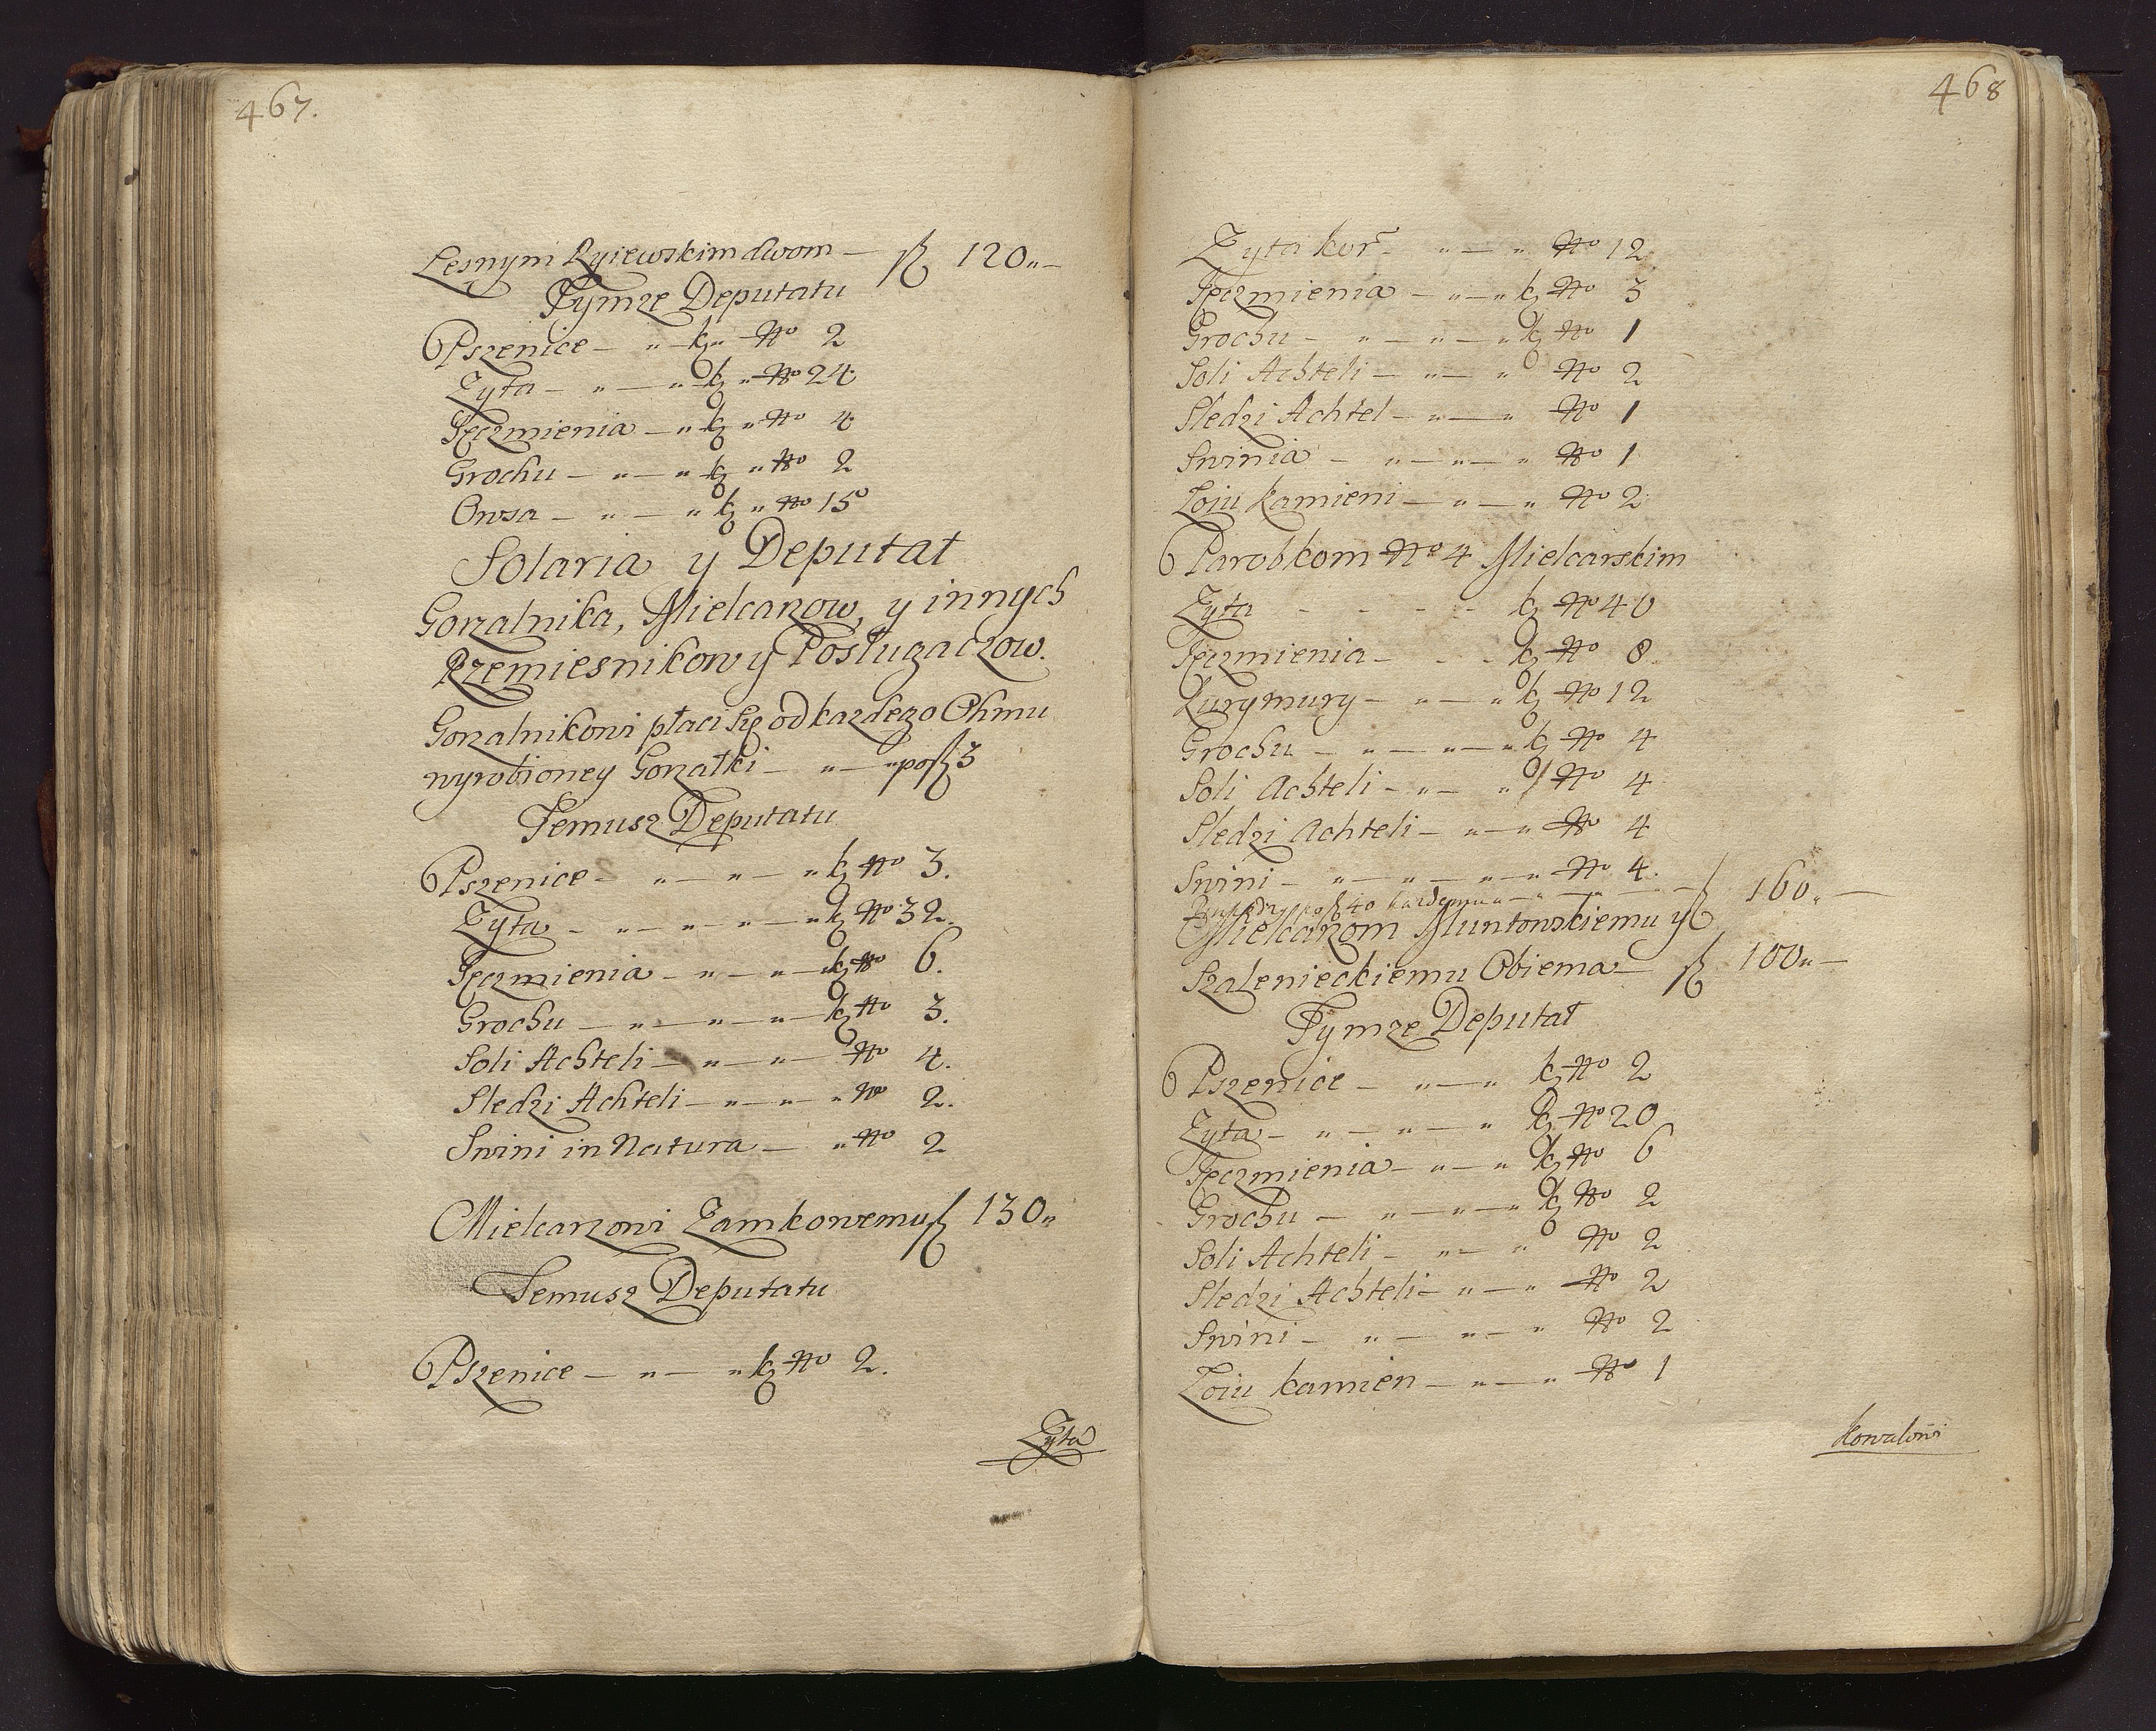 467.
Lesnym Kyiewskim dwom — fl 120 „ —
Tymze Deputatu
Pszenice — „ — k „ No 2
Zyta — „ — „ k „ No 24
Jęczmienia — „ k „ No 4
Grochu — „ — „ k „ No 2
Owsa — „ — „ k „ No 15
Solaria y Deputat
Gorzalnika, Mielcarzow, y innych
Rzemiesnikow y Posługaczow.
Gorzalnikowi płaci się od kazdego Ohmu
wyrobioney Gorzałki — „ — „ po fl 3
Temusz Deputatu
Pszenice — „ — „ — „ k No 3.
Zyta — „ — „ — „ — „ k No 32.
Jęczmienia — „ — „ — „ k No 6.
Grochu — „ — „ — „ k No 3.
Soli Achteli — „ — „ — No 4.
Sledzi Achteli — „ — „ — „ No 2.
Swini in Natura — „ No 2
Mielcarzowi Zamkowemu fl 130 „
Temusz Deputatu
Pszenice — „ — „ k No 2.
Zyta
468
Zyta kor — „ — „ No 12
Jęczmienia — „ — „ k No 3
Grochu — „ — „ — „ k No 1
Soli Achteli — „ — „ No 2
Sledzi Achtel — „ — „ No 1
Swinia — „ — „ — „ No 1
Łoiu kamieni — „ — „ No 2
Parobkom No 4 Mielcarskim
Zyta - - - - k No 40
Jęczmienia — - - k No 8.
Kurymury — „ — „ k No 12
Grochu — „ — „ — „ k No 4
Soli Achteli — „ — „ No 4
Sledzi Achteli — „ — „ No 4
Swini — „ — „ — „ — „ No 4.
po fl 40 kazdemu „ — „ — „ — fl 160 „ —
Mielcarzom Muntowskiemu y
Szalenieckiemu Obiema — fl 100 „ —
Tymze Deputat
Pszenice — „ — „ k No 2
Zyta — „ — „ — „ k No 20
Jęczmienia — „ — „ k No 6
Grochu — „ — „ — „ k No 2
Soli Achteli — „ — „ No 2
Sledzi Achteli — „ — „ No 2
Swini — „ — „ — „ No 2
Łoiu kamien — „ — „ No 1
Kowalowi